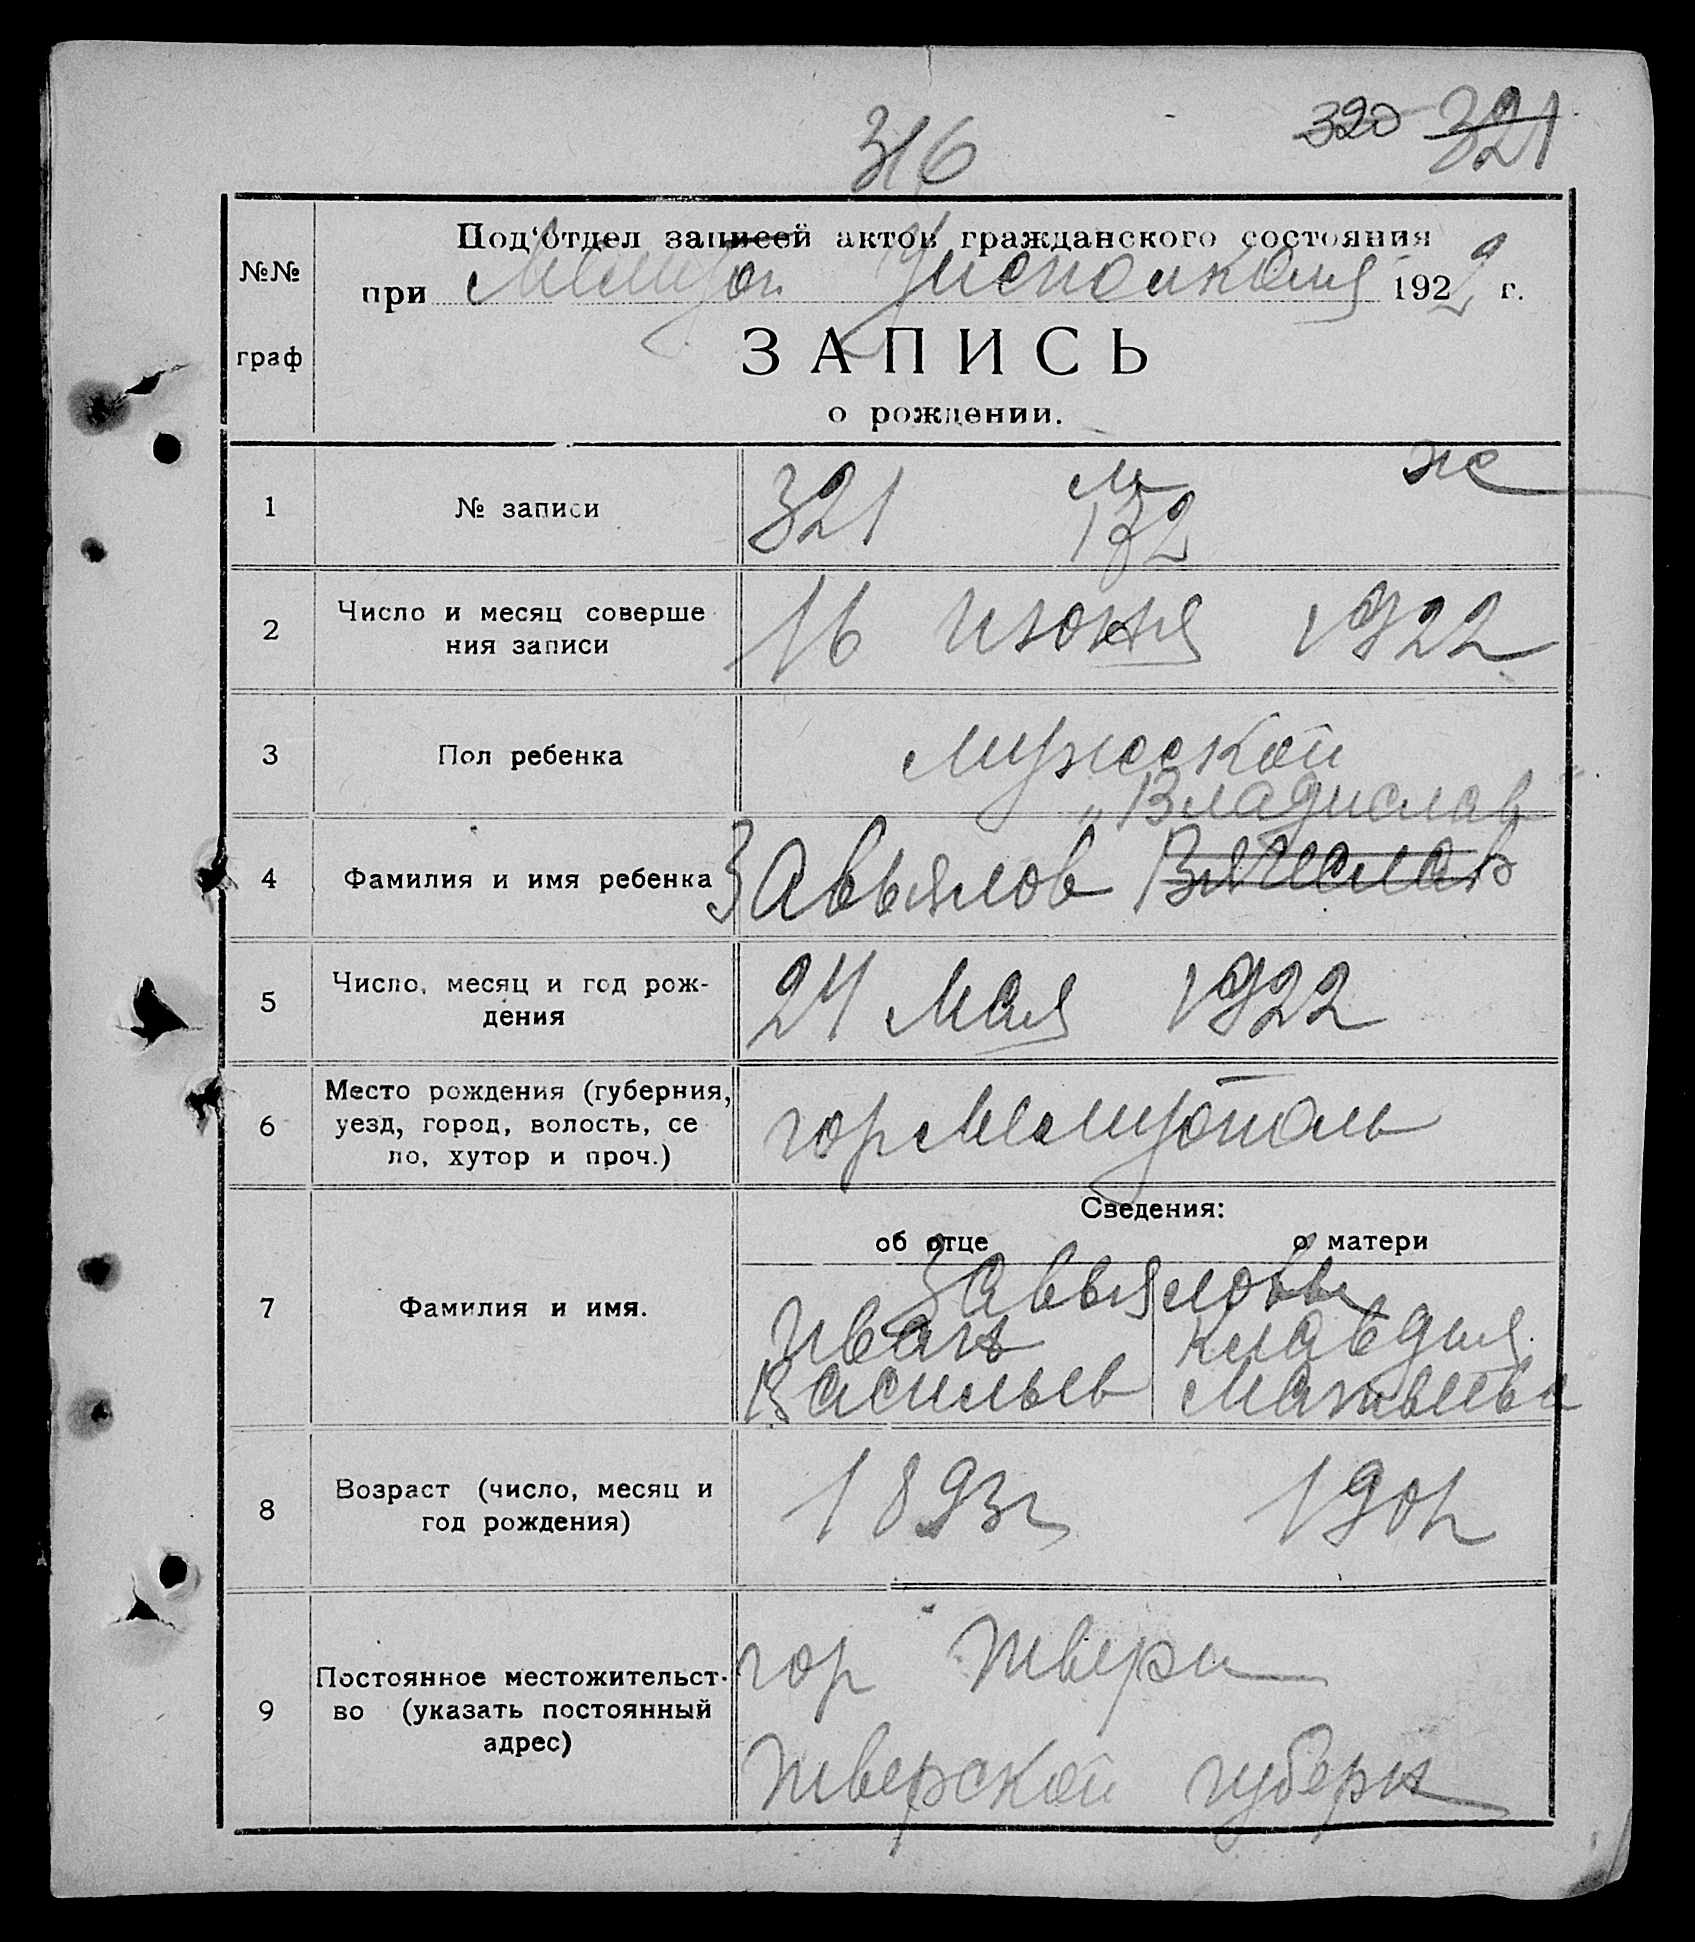 316
320 321
№№
граф
Под'отдел записей актов гражданского состояния
при Мелитоп Уисполкоме 1922 г.
ЗАПИСЬ
о рождении.
м ж
1 № записи 321 172
2 Число и месяц соверше
ния записи 16 июня 1922
3 Пол ребенка мужской
„Владислав"
4 Фамилия и имя ребенка Завьялов Вячеслав
5 Число, месяц и год рож-
дения 24 мая 1922
6 Место рождения (губерния,
уезд, город, волость, се
ло, хутор и проч.) гор Мелитополь
Сведения:
об отце о матери
7 Фамилия и имя. Завьяловы
Иван Клавдия
Васильев Матвеева
8 Возраст (число, месяц и
год рождения) 1893г 1901г
9 Постоянное местожительст-
во (указать постоянный
адрес)
гор Твери
Тверской губерн